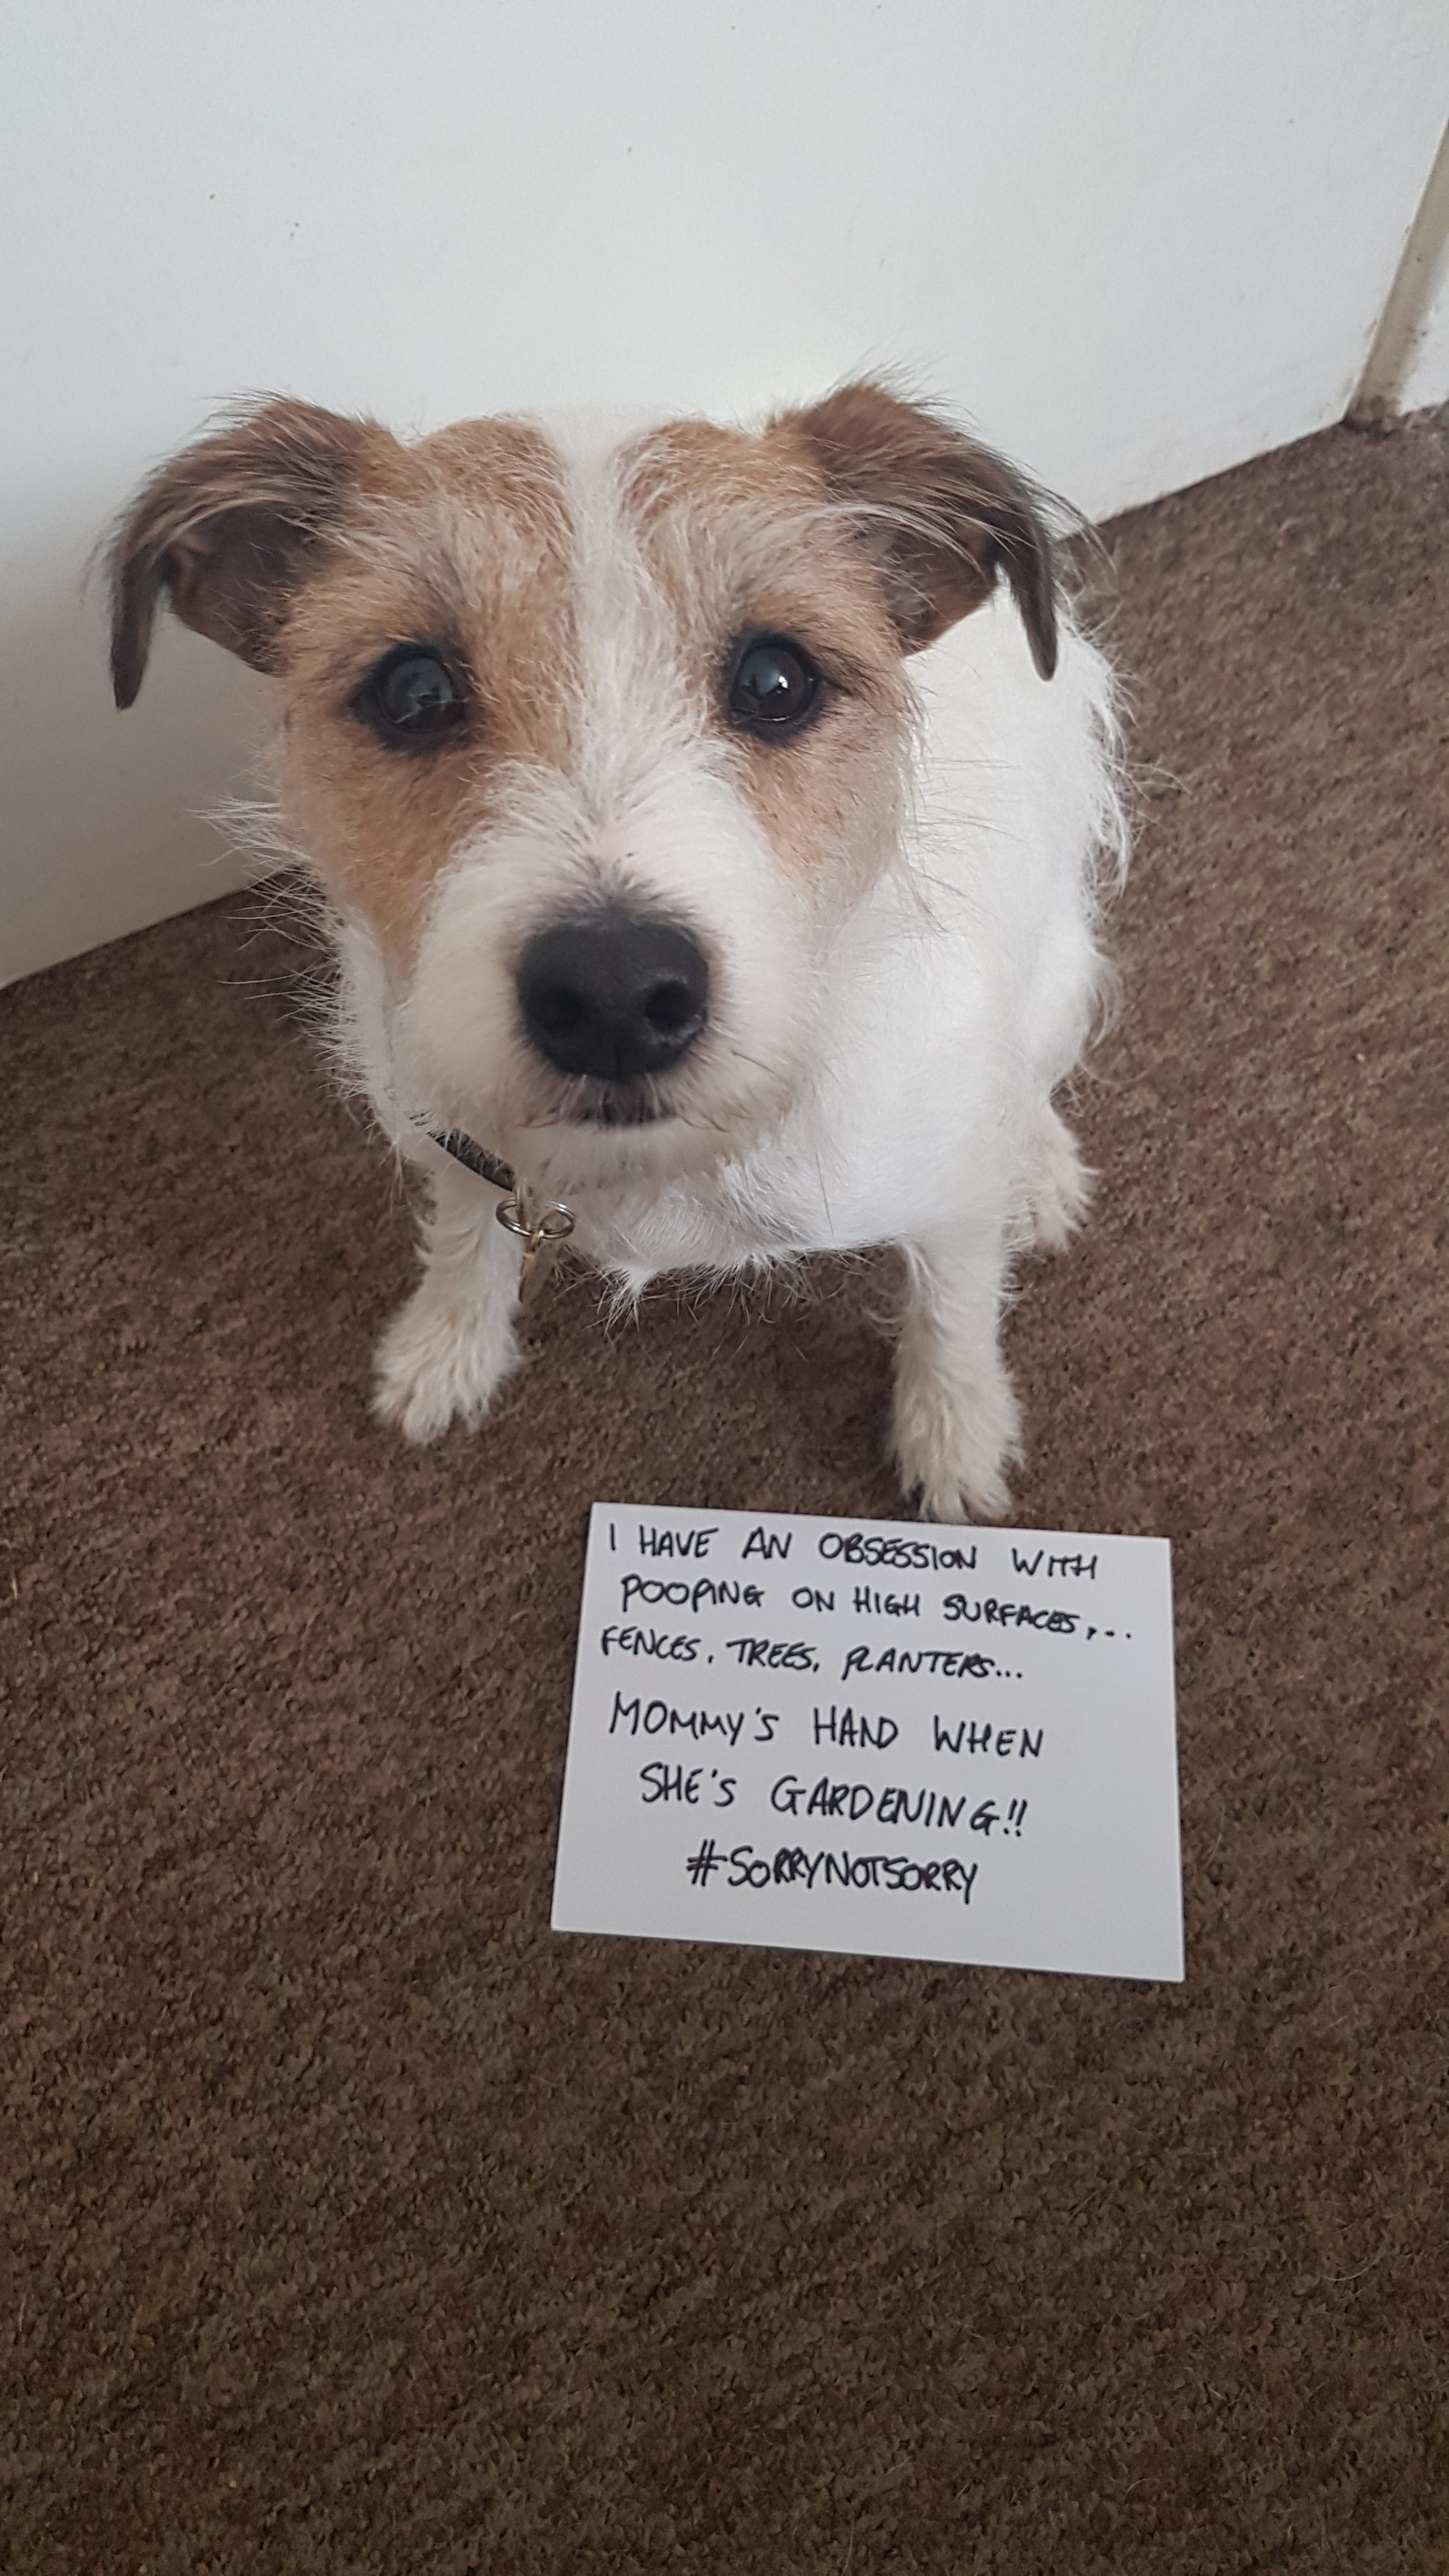 I HAVE AN OBSESSION WITH
POOPING ON HIGH SURFACES,...
FENCES, TREES, PLANTERS...
MOMMY'S HAND WHEN
SHE'S GARDENING!!
#SORRYNOTSORRY